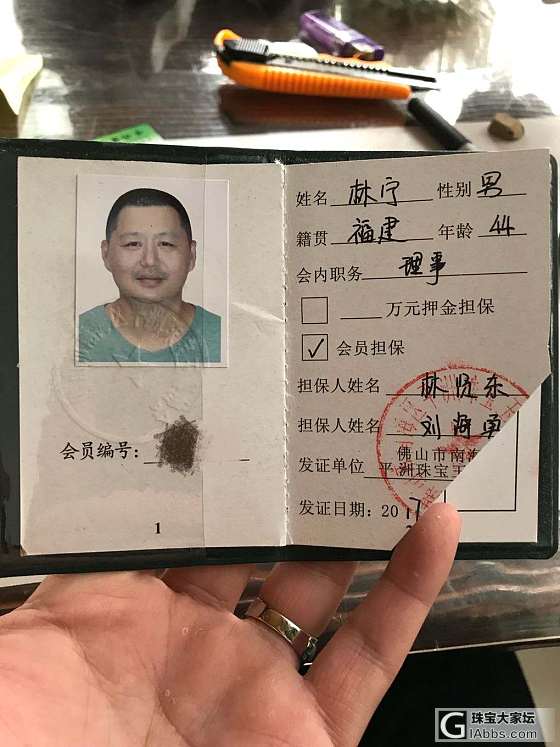 会员编号：
1
姓名 林宁 性别 男
籍贯 福建 年龄 44
会内职务 理事
万元押金担保
✓ 会员担保
担保人姓名 林贤东
担保人姓名 刘海勇
发证单位 佛山市南海
平洲珠宝玉
发证日期：2017
G 珠宝大家坛
iAbbs.com